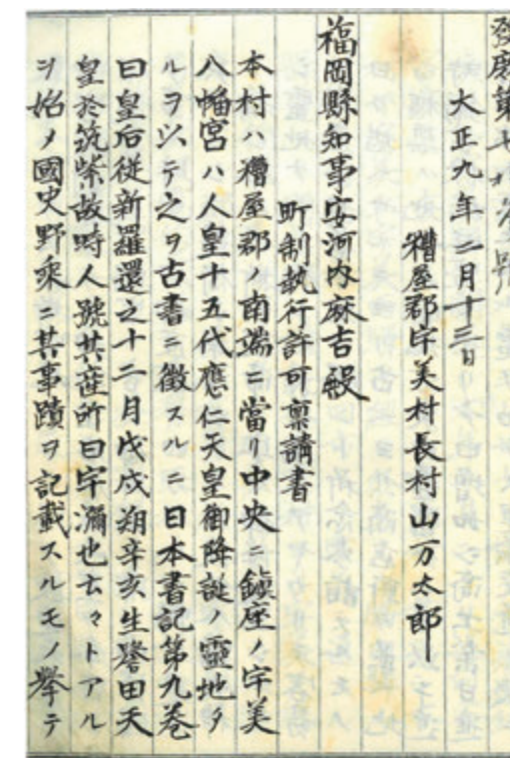 發庶第
大正九年二月十三日
糟屋郡宇美村長村山万太郎
福岡縣知事安河内麻吉殿
町制執行許可稟請書
本村ハ糟屋郡ノ南端ニ當リ中央ニ鎮座ノ宇美
八幡宮ハ人皇十五代應仁天皇御降誕ノ靈地タ
ルヲ以テ之ヲ古書ニ徴スルニ日本書記第九巻
曰皇后従新羅還之十二月戊戌朔辛亥生譽田天
皇於筑紫故時人號其産所曰宇瀰也云々トアル
ヲ始ノ國史野乘ニ其事蹟ヲ記載スルモノ擧テ